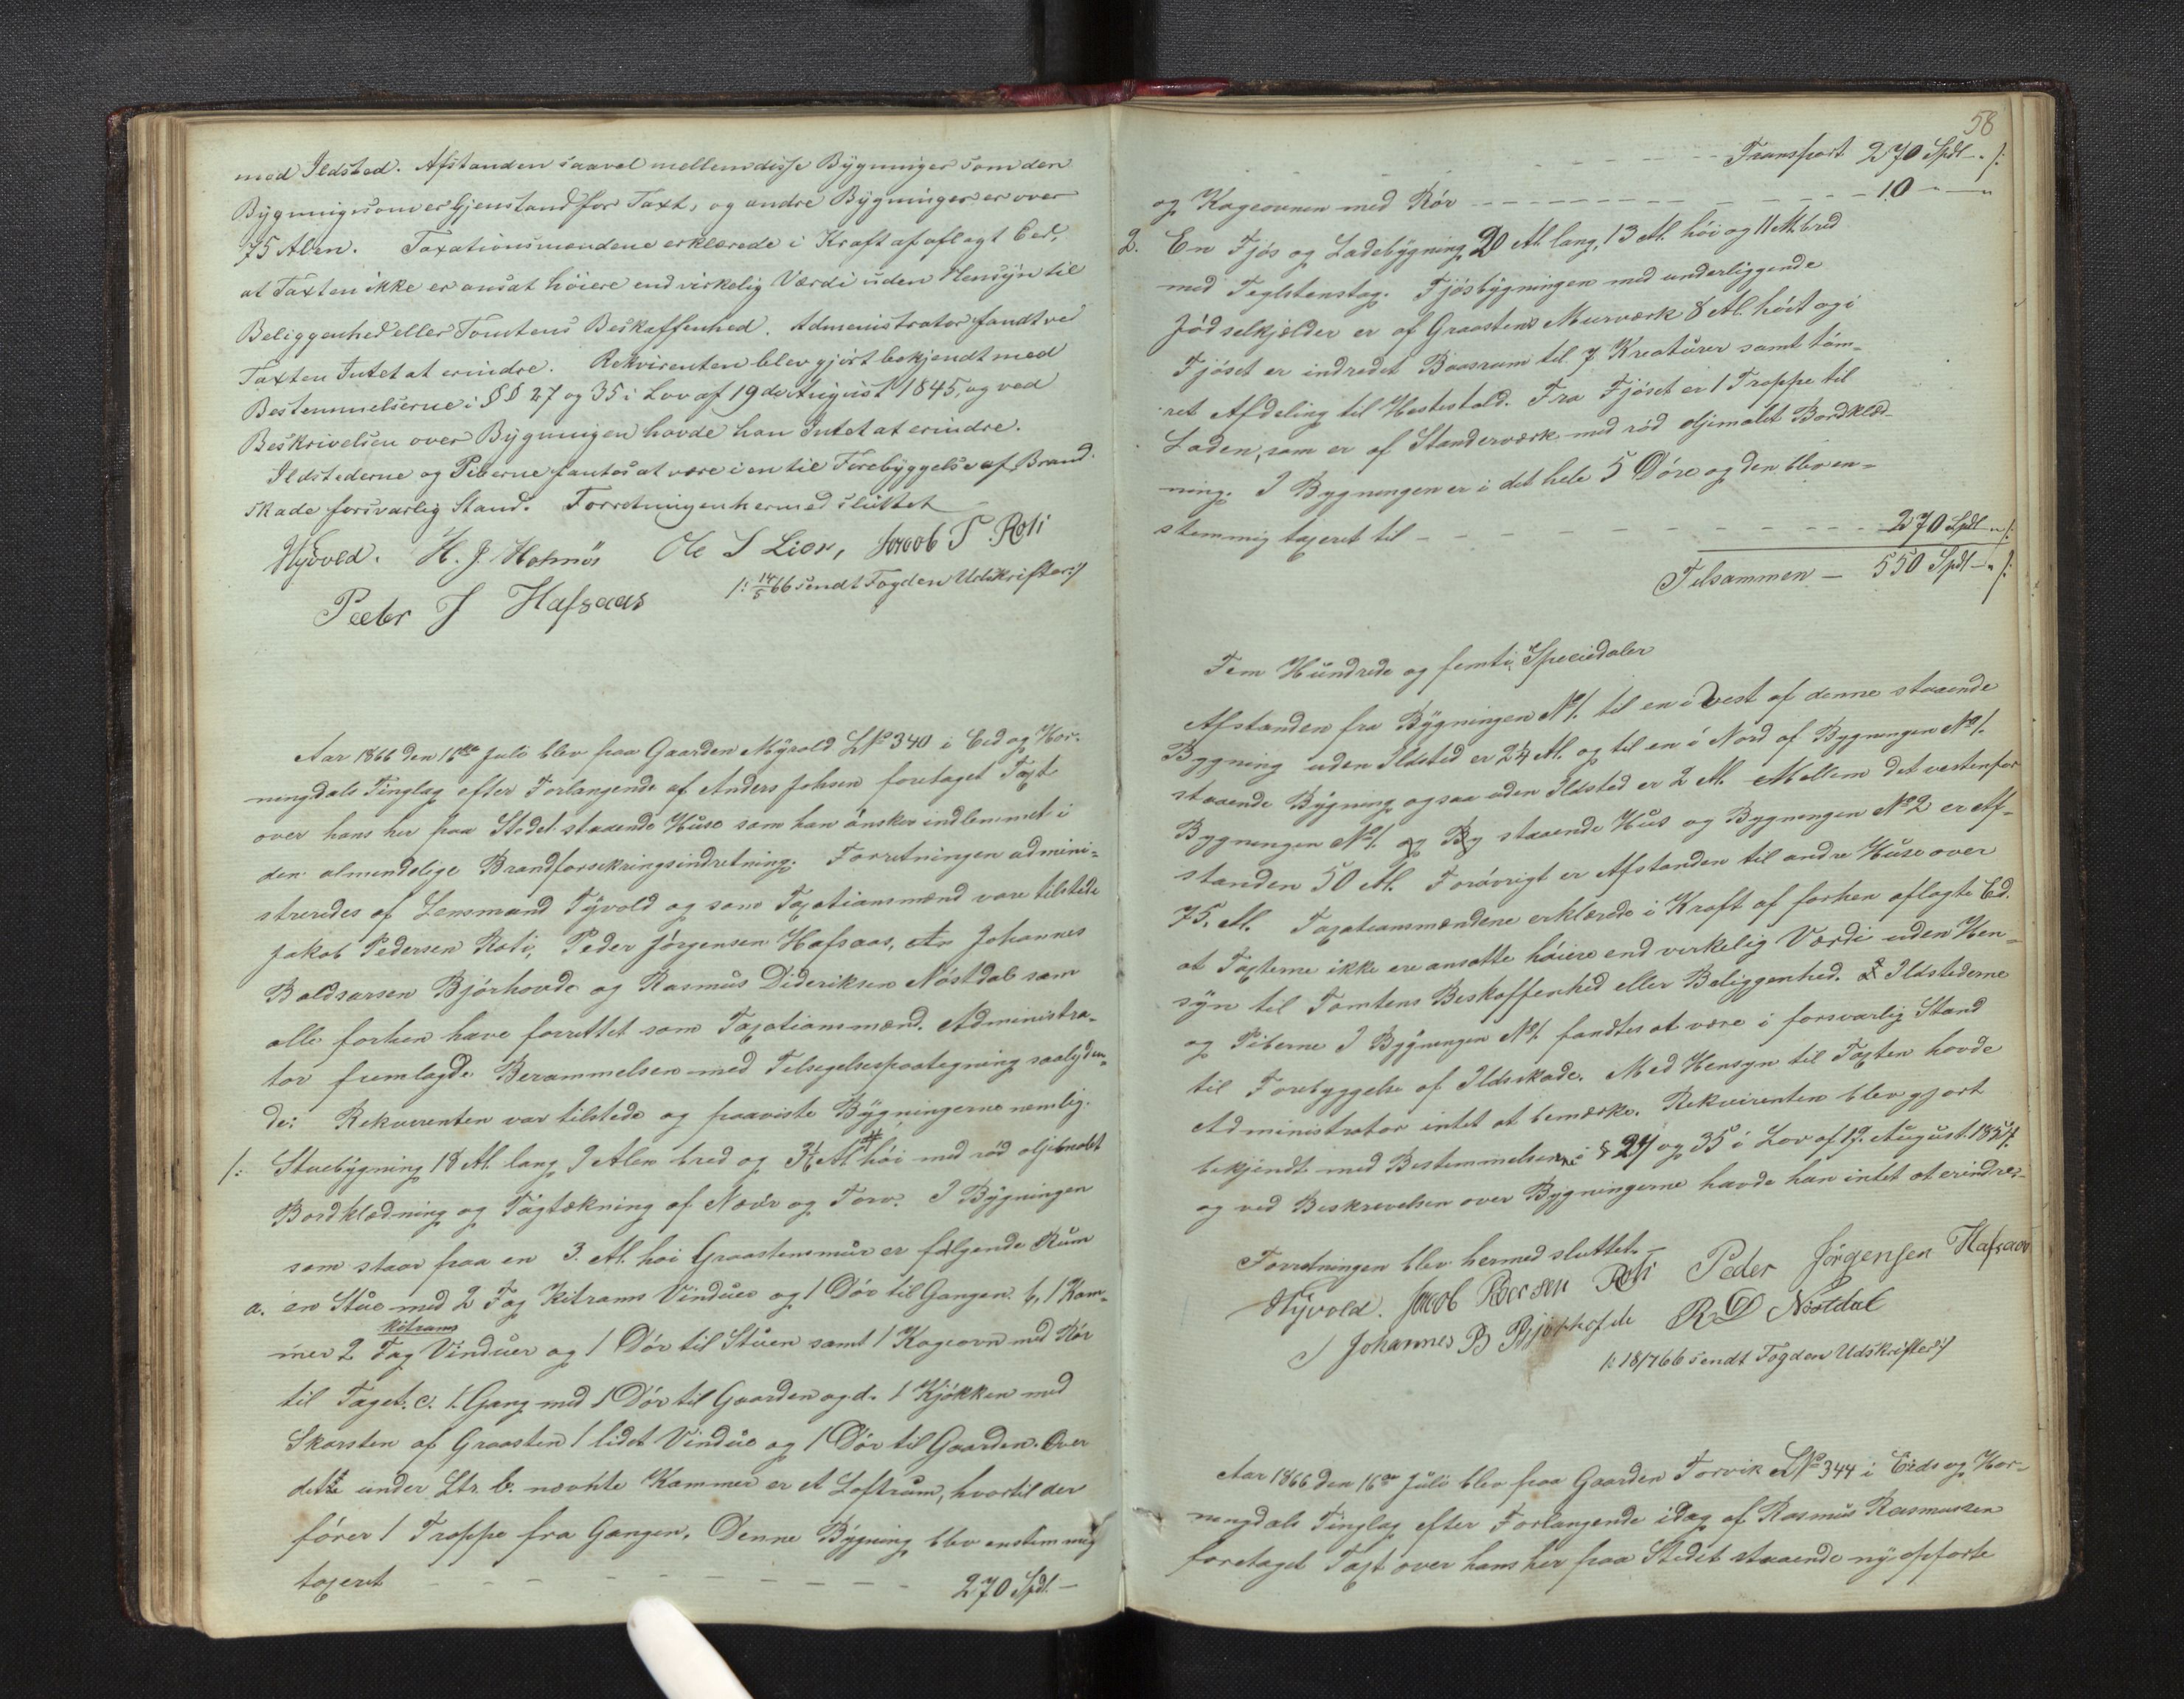 med Ildsted. Afstanden saavel mellem disse Bygninger som den
Bygning som er Gjenstand for Taxt, og andre Bygninger er over
75 Alen. Taxationsmændene erklærede i Kraft af aflagt Eed,
at Taxten ikke er ansat høiere end virkelig Værdi uden Hensyn til
Beliggenhed eller Tomtens Beskaffenhed. Administrator fandt ved
Taxten Intet at erindre. Rekvirenten blev gjort bekjendt med
Bestemmelserne i §§ 27 og 35 i Lov af 19de August 1845, og ved
Beskrivelsen over Bygningen havde han Intet at erindre.
Ildstederne og Piberne fantes at være i en til Forebyggelse af Brand-
skade forsvarlig Stand. Forretningen hermed sluttet
Hyvold. H. J. Holmøi Ole S Lien, Jacob P. Roti
Peder J Hafsaas
/: 14/5 66 sendt Fogden Udskrifter :/
Aar 1866 den 16de Juli blev paa Gaarden Myrold LNo 340 i Eid og Hor-
ningdals Tinglag efter Forlangende af Anders Johsen foretaget Taxt
over hans her paa Stedet staaende Huse som han ønsker indlemmet i
den almindelige Brandforsikringsindretning. Forretningen admini-
streredes af Lensmand Hyvold og som Taxationsmænd vare tilstede
Jakob Pedersen Roti, Peder Jørgensen Hafsaas, Johannes
Baldsarsen Bjørhovde og Rasmus Dideriksen Nøstdal som
alle forhen have forrettet som Taxationsmænd. Administra-
tor fremlagde Berammelsen med Tilsigelsespaategning saalyden-
de: Rekvirenten var tilstede og paaviste Bygningerne nemlig.
1: Stuebygning 18 Al. lang 9 Alen bred og 3½ Al høi med rød oljemalet
Bordklædning og Tagtækning af Næver og Torv. I Bygningen
som staar paa en 3. Al. høi Graastensmur er følgende Rum
a. en Stue med 2 Fag Kitrams Vinduer og 1 Dør til Gangen. b, 1 Kam-
kitrams
mer 2 Fag Vinduer og 1 Dør til Stuen samt 1 Kogeovn med Rør
til Taget. c. 1. Gang med 1 Dør til Gaarden og d. 1 Kjøkken med
Skorsten af Graasten 1 lidet Vindue og 1 Dør til Gaarden. Over
dette under Ltr. b. nævnte Kammer er et Loftrum, hvortil der
fører 1 Trappe fra Gangen. Denne Bygning blev enstemmig
taxeret - - - - - - - - - 270 Spd. -
58
- - - - - - Transport 270 Spdl - „ /:
og Kogeovnen med Rør - - - - - - - - - - 10 - „ - „
2. En Fjøs og Ladebygning 20 Al. lang, 13 Al. høi og 11 Al. bred
med Teglstenstag. Fjøsbygningen med underliggende
Gjødselkjelder er af Graastens Murværk 8 Al. høit og i
Fjøset er indredet Baasrum til 7 Kreaturer samt tøm-
ret Afdeling til Hestestald. Fra Fjøset er 1 Trappe til
Laden, som er af Standerværk med rød oljemalet Bordklæd-
ning. I Bygningen er i det hele 5 Døre og den blev en-
stemmig taxeret til - - - - - - - - - - 270 Spdl „ /:
Tilsammen - 550 Spdl - „ /:
Fem Hundrede og femti Speciedaler
Afstanden fra Bygningen No 1. til en i Vest af denne staaende
Bygning uden Ildsted er 24 Al. og til en i Nord af Bygningen No 1.
staaende Bygning ogsaa uden Ildsted er 2 Al. Mellem det vestenfor
Bygningen No 1. og By staaende Hus og Bygningen No 2 er Af-
standen 50 Al. Forøvrigt er Afstanden til andre Huse over
75. Al. Taxationsmændene erklærede i Kraft af forhen aflagte Ed.
at Taxterne ikke ere ansatte høiere end virkelig Værdi uden Hen-
syn til Tomtens Beskaffenhed eller Beliggenhed. Ildstederne
og Piberne I Bygningen No 1. fandtes at være i forsvarlig Stand
til Forebyggelse af Ildsskade. Med Hensyn til Taxten havde
Administrator intet at bemærke. Rekvirenten blev gjort
bekjendt med Bestemmelserne i § 27 og 35 i Lov af 19. August. 1845.
og ved Beskrivelsen over Bygningerne havde han intet at erindre.-
Forretningen blev hermed sluttet. -
Hyvold. Jacob Peersen Roti Peder Jørgensen Hafsaas
Johannes B Bjørhofde R D Nøstdal
/: 18/7 66 sendt Fogden Udskrifter :/
Aar 1866 den 16de Juli blev paa Gaarden Torvik LNo 344 i Eids og Hor-
ningdals Tinglag efter Forlangende idag af Rasmus Rasmussen
foretaget Taxt over hans her paa Stedet staaende ny opførte